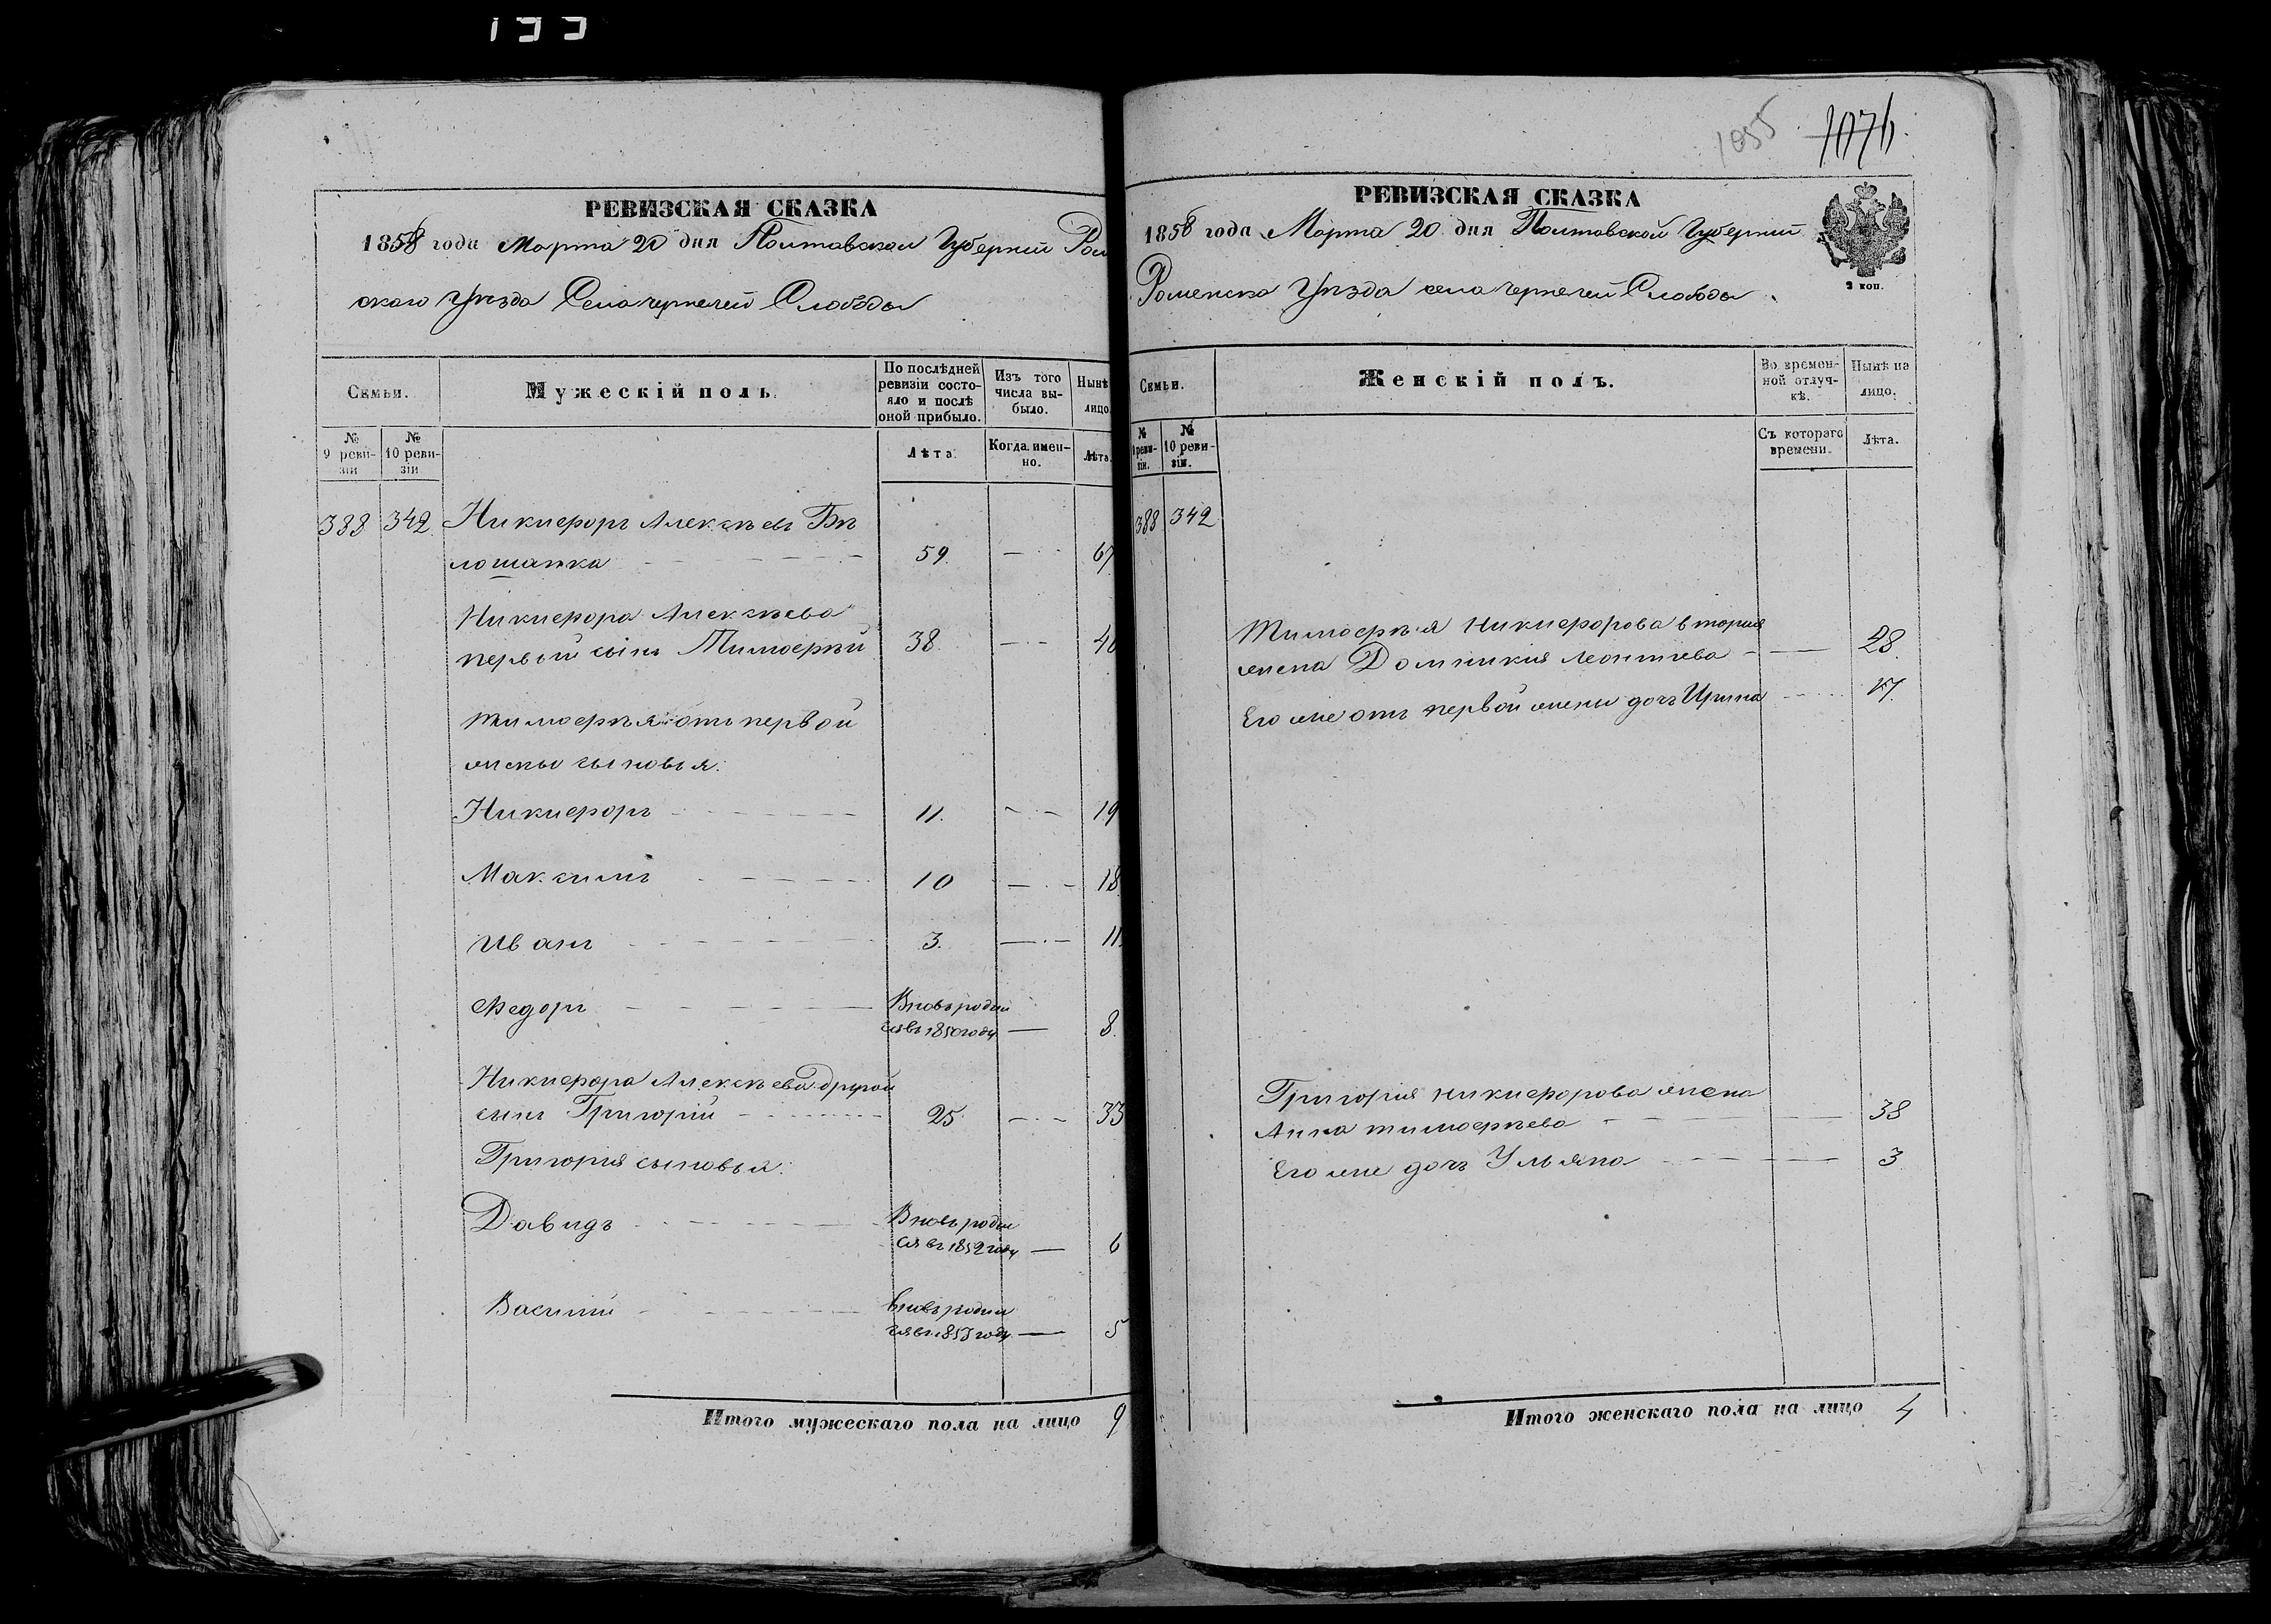 1055 1076
РЕВИЗСКАЯ СКАЗКА
1858 года Марта 20 дня Полтавской Губернiи Ром
скаго Уѣзда Села Чернечей Слободы
Семьи.
Мужескiй полъ.
По послѣдней ревизiи состо-
яло и послѣ оной прибыло.
Изъ того числа вы-
было.
Нынѣ
лицо
№ 9 реви-
зiи
№ 10 реви-
зiи
Лѣта
Когда имен-
но.
Лѣта.
388 342 Никифоръ Алексѣевъ Бѣ
лошапка 59. 67
Никифора Алексѣева
первой сынъ Тимофѣй 38.
Тимофѣя отъ первой
жены сыновья:
Никифоръ 11. 19
Максимъ 10 18
Иванъ 3. 11.
Федоръ Вновь родил
ся въ 1850 году 8.
Никифора Алексѣева другой
сынъ Григорiй 25 33
Григорiя сыновья:
Давидъ Вновь родил
ся въ 1852 году 6
Василiй вновь родил
ся въ 1853 году 5
Итого мужескаго пола на лицо 9
РЕВИЗСКАЯ СКАЗКА
1858 года Марта 20 дня Полтавской Губернiи
Роменска Уѣзда села Чернечей Слободы
2 коп.
Семьи.
Женскiй полъ.
Во времен-
ной отлуч-
кѣ.
Нынѣ на
лицо.
№ 9 реви-
зiи.
№ 10 реви-
зiи.
Съ котораго
времени.
Лѣта.
388 342
Тимофѣя Никифорова вторая
жена Домникiя Леонтьева 28.
Его же отъ первой жены дочь Ирина 17.
Григорiя Никифорова жена
Анна Тимофѣева 38
Его же дочь Ульяна 3
Итого женскаго пола на лицо 4